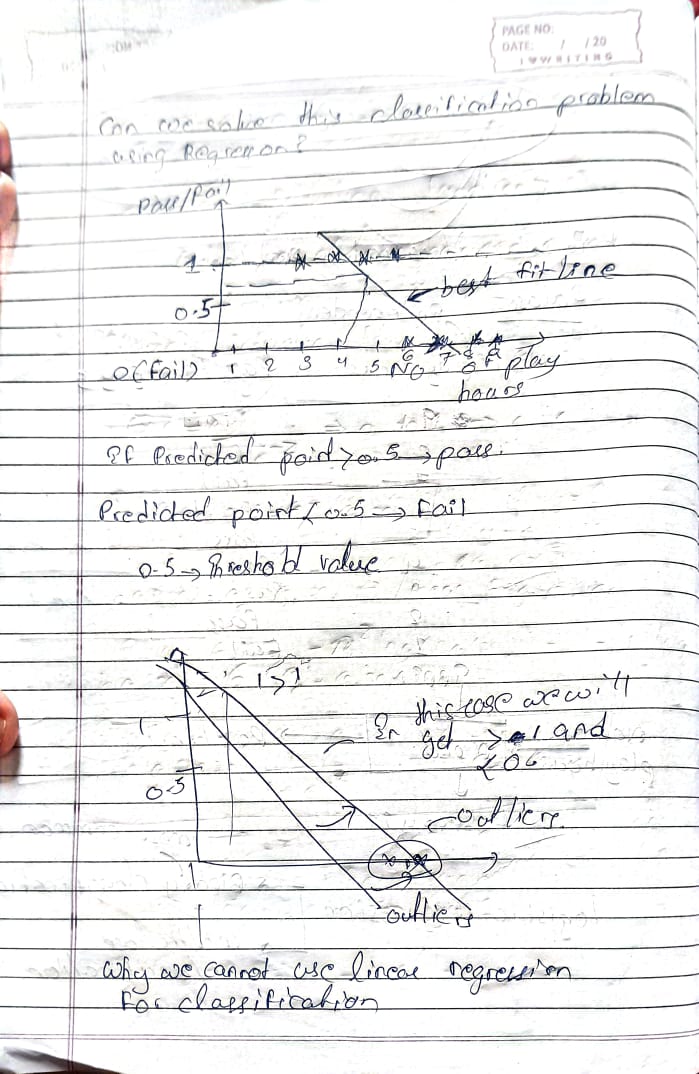 PAGE NO:
DATE: / /20
I ♥ WRITING
Can we solve this classification problem
using Regression?
Pass/Fail
1
0.5
best fit line
0(Fail) 1 2 3 4 5 6 7 8 9
No of play
hours
If Predicted point > 0.5 → pass.
Predicted point < 0.5 → Fail
0.5 → Threshold value
>1
In this case we will
get > 1 and
1
0.5
outliers
outliers
Why we cannot use linear regression
For classification